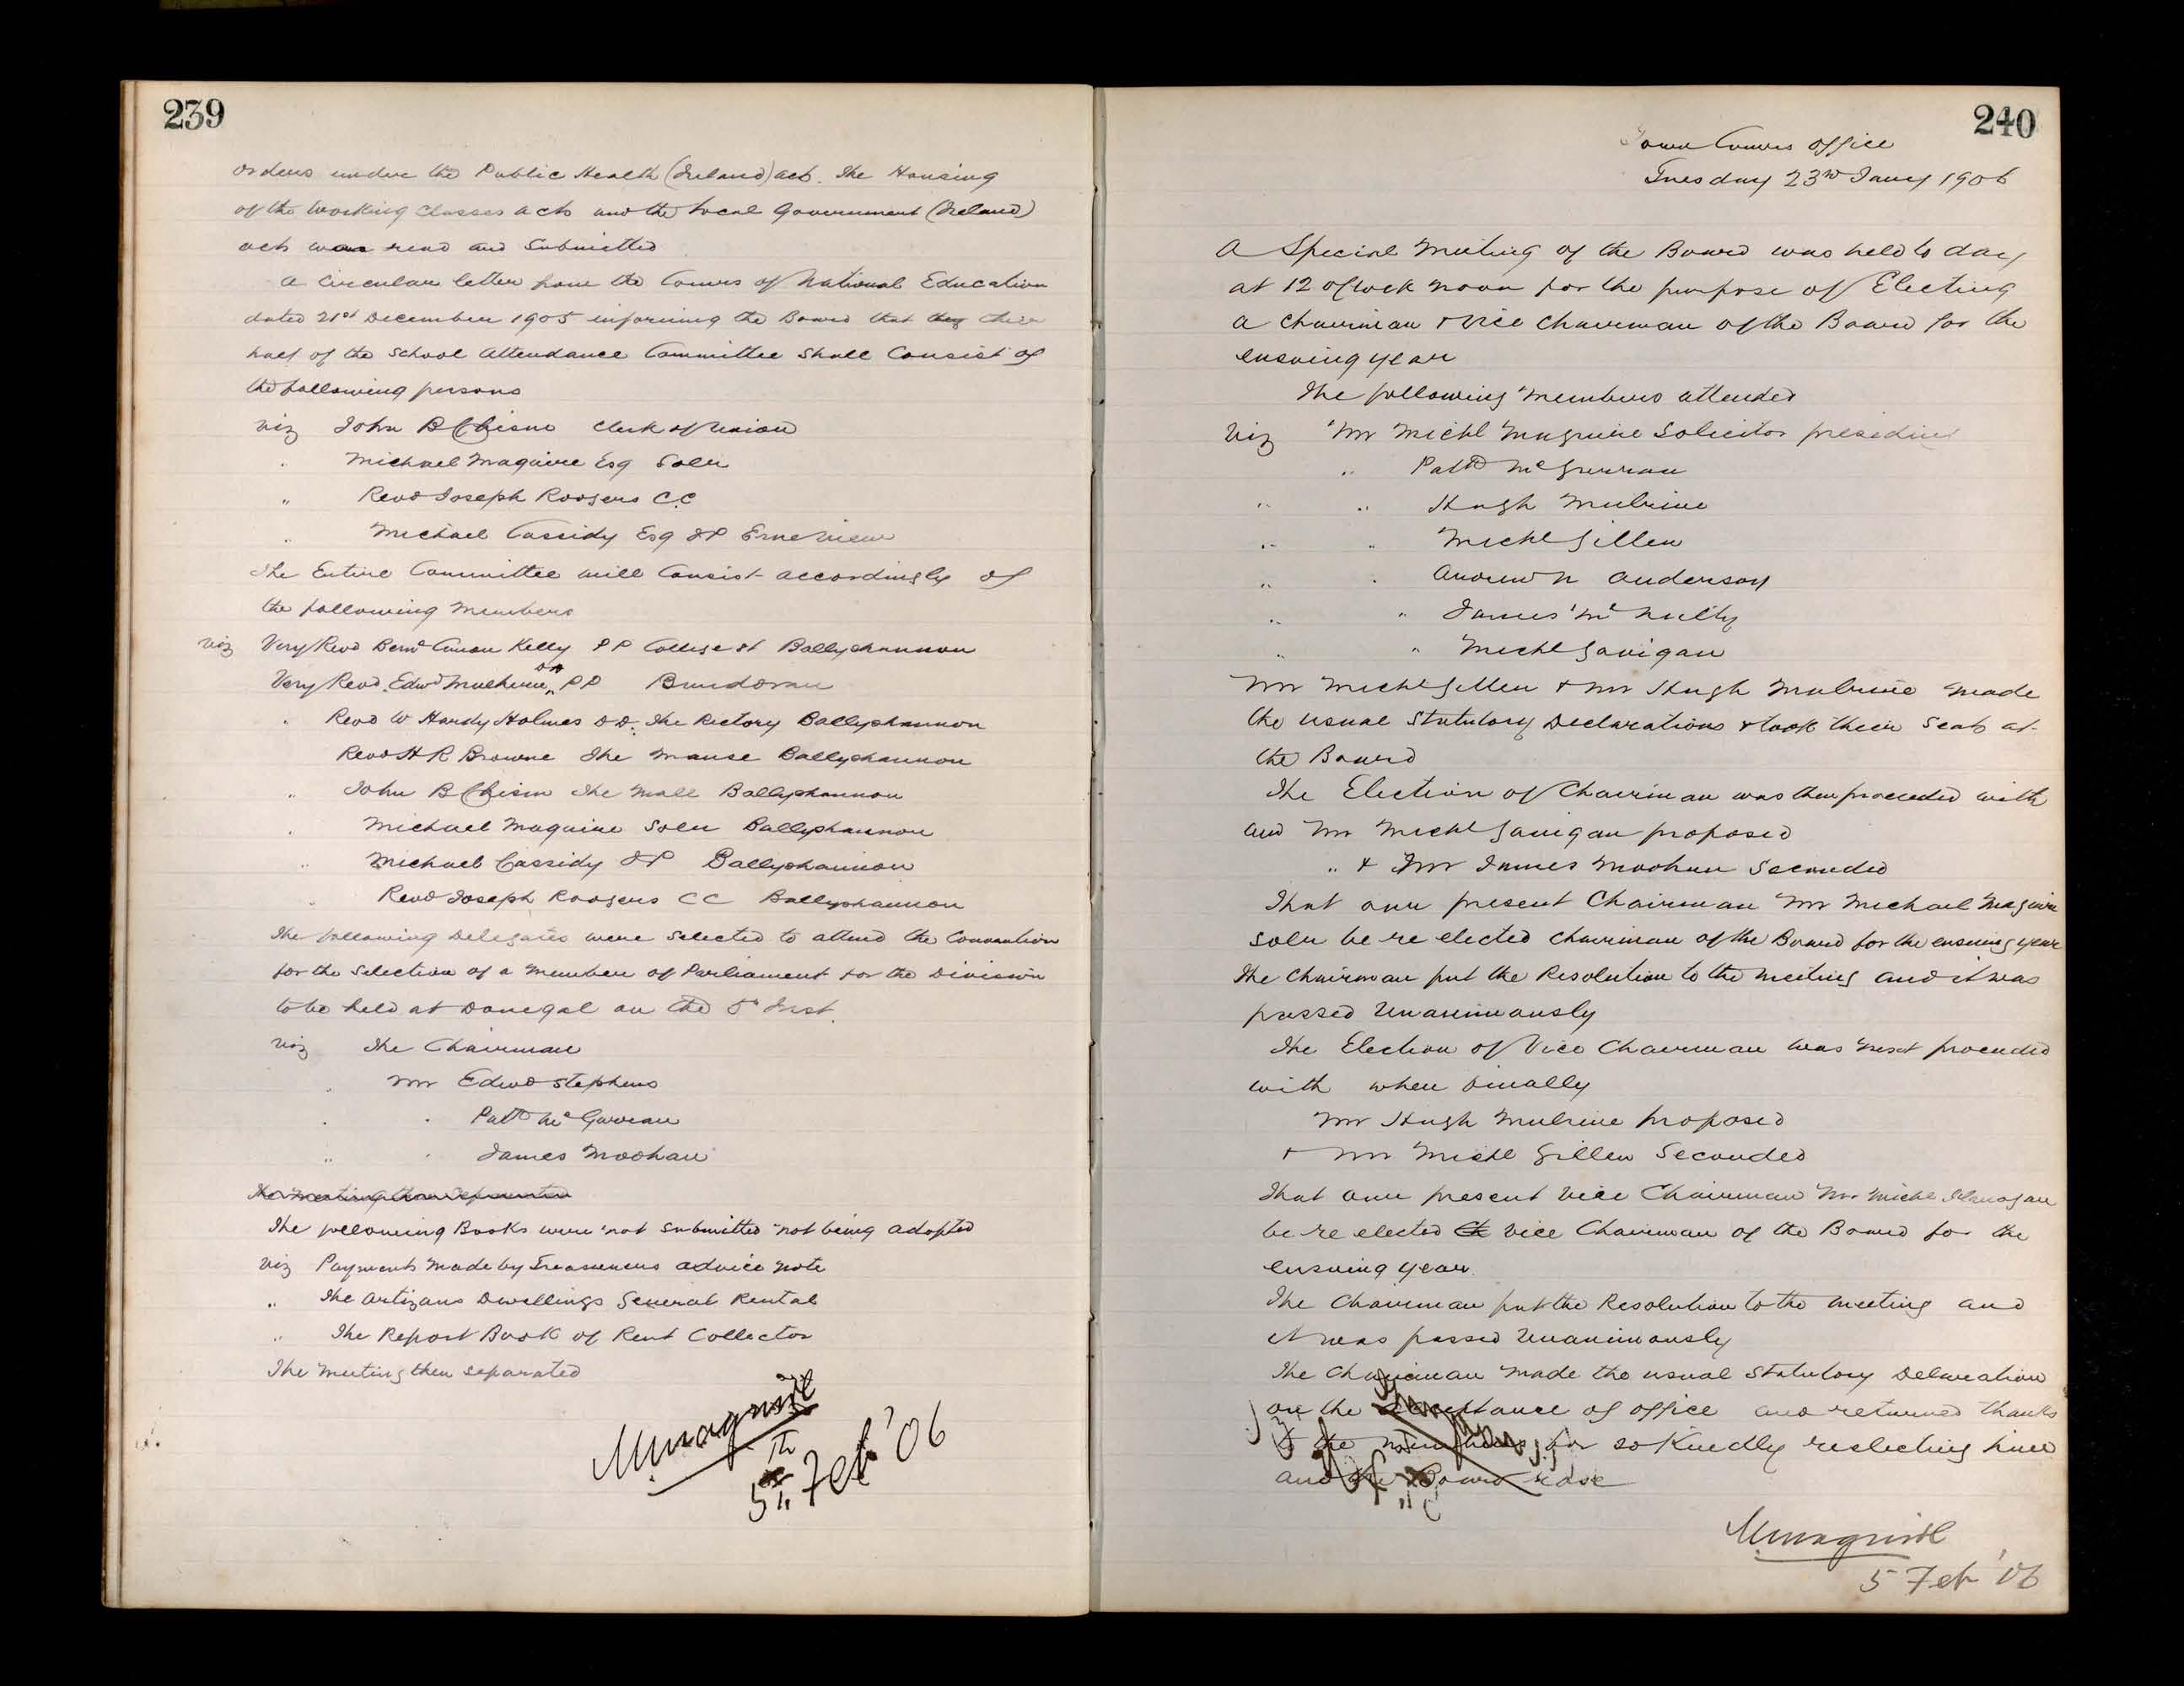 239
orders under the Public Health (Ireland) act. The Housing
of the Working Classes acts and the Local Government (Ireland)
acts was read and Submitted
a Circular letter from the Comrs of National Education
dated 21st December 1905 informing the Board that
half of the School Attendance Committee Shall Consist of
the following persons
viz John B Chism Clerk of Union
Michael Maguire Esq Solr
" Revd Joseph Rodgers C.C
" Michael Cassidy Esq JP Erne View
The Entire Committee will Consist accordingly of
the following Members
viz Very Revd Bernd Canon Kelly PP College St Ballyshannon
Very Revd Edwd PP Bundoran
" Revd W Hardy Holmes DD. The Rectory Ballyshannon
Revd H R Browne The Manse Ballyshannon
" John B Chism The Mall Ballyshannon
" Michael Maguire Solr Ballyshannon
" Michael Cassidy JP Ballyshannon
" Revd Joseph Rodgers CC Ballyshannon
The following Delegates were Selected to attend the Convention
for the Selection of a Member of Parliament for the Division
to be held at Donegal on the 5th Inst.
viz The Chairman
" Mr Edwd Stephens
" " Patk McGurran
" " James Moohan
The meeting then Separated
The following Books were not Submitted not being adopted
viz Payments Made by Treasurers advice note
" The Artizans Dwellings General Rental
" The Report Book of Rent Collector
The Meeting then separated
MMaguire
5th Feb '06
240
Town Comrs Office
Tuesday 23rd Jany 1906
A Special Meeting of the Board was held to day
at 12 oClock noon for the purpose of Electing
a Chairman & Vice Chairman of the Board for the
ensuing year
The following Members attended
Viz Mr Michl Maguire Solicitor presiding
" Patk McGurran
" " Hugh Mulrine
" " Michl Gillen
" " Andrew N Anderson
" " James McNulty
" " Michl Gavigan
Mr Michl Gillen & Mr Hugh Mulrine made
the usual Statutory Declarations & took their Seats at
the Board
The Election of Chairman was then proceeded with
and Mr Michl Gavigan proposed
" & Mr James Moohan Seconded
That our present Chairman Mr Michael Maguire
Solr be re elected Chairman of the Board for the ensuing year
The Chairman put the Resolution to the meeting and it was
passed Unanimously
The Election of Vice Chairman was next proceeded
with when finally
Mr Hugh Mulrine proposed
& Mr Michl Gillen Seconded
That our present Vice Chairman Mr Michl Flanagan
be re elected Ch Vice Chairman of the Board for the
ensuing year
The Chairman put the Resolution to the meeting and
it was passed Unanimously
The Chairman made the usual Statutory Declaration
on the acceptance of office and returned thanks
to the members for so Kindly reelecting him
and the Board rose
MMaguire
5 Feb '06